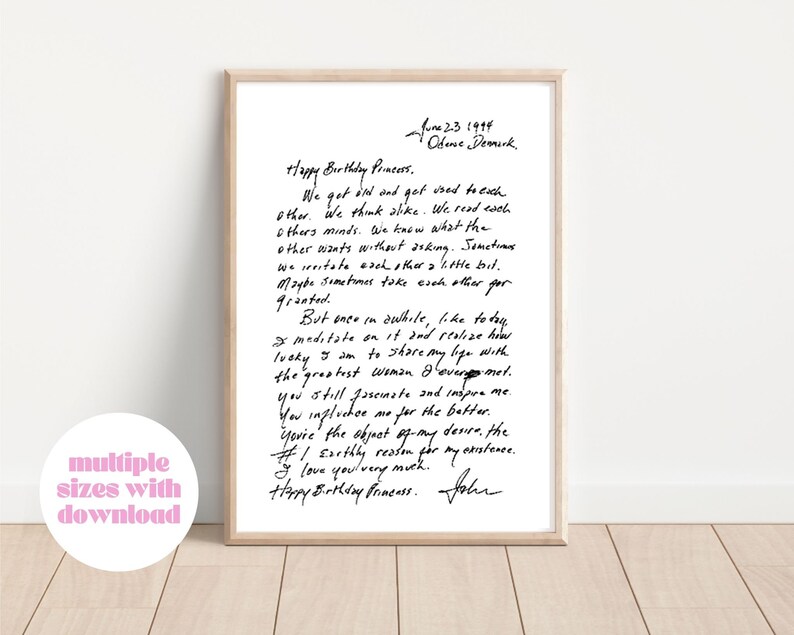 June 23 1994
Odense Denmark.
Happy Birthday Princess,
We got old and got used to each
other. We think alike. We read each
others minds. We know what the
other wants without asking. Sometimes
we irritate each other a little bit.
Maybe sometimes take each other for
granted.
But once in awhile, like today,
I meditate on it and realize how
lucky I am to share my life with
the greatest woman I ever met.
You still fascinate and inspire me.
You influence me for the better.
You're the object of my desire, the
#1 Earthly reason for my existence.
I love you very much.
Happy Birthday Princess.
John
multiple
sizes with
download